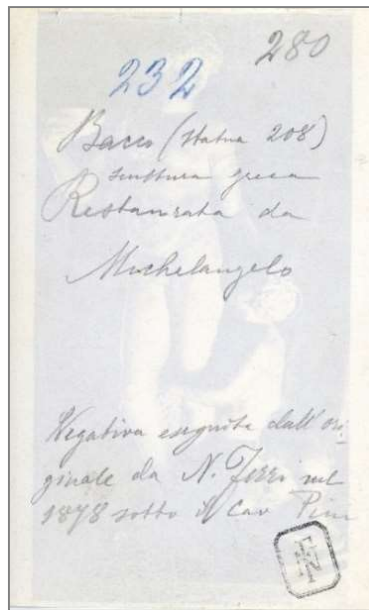 280
232
Bacco (statua 208)
scultura greca
Restaurata da
Michelangelo
Negativa eseguita dall'ori-
ginale da N. Ferri nel
1878 sotto il Cav Pini